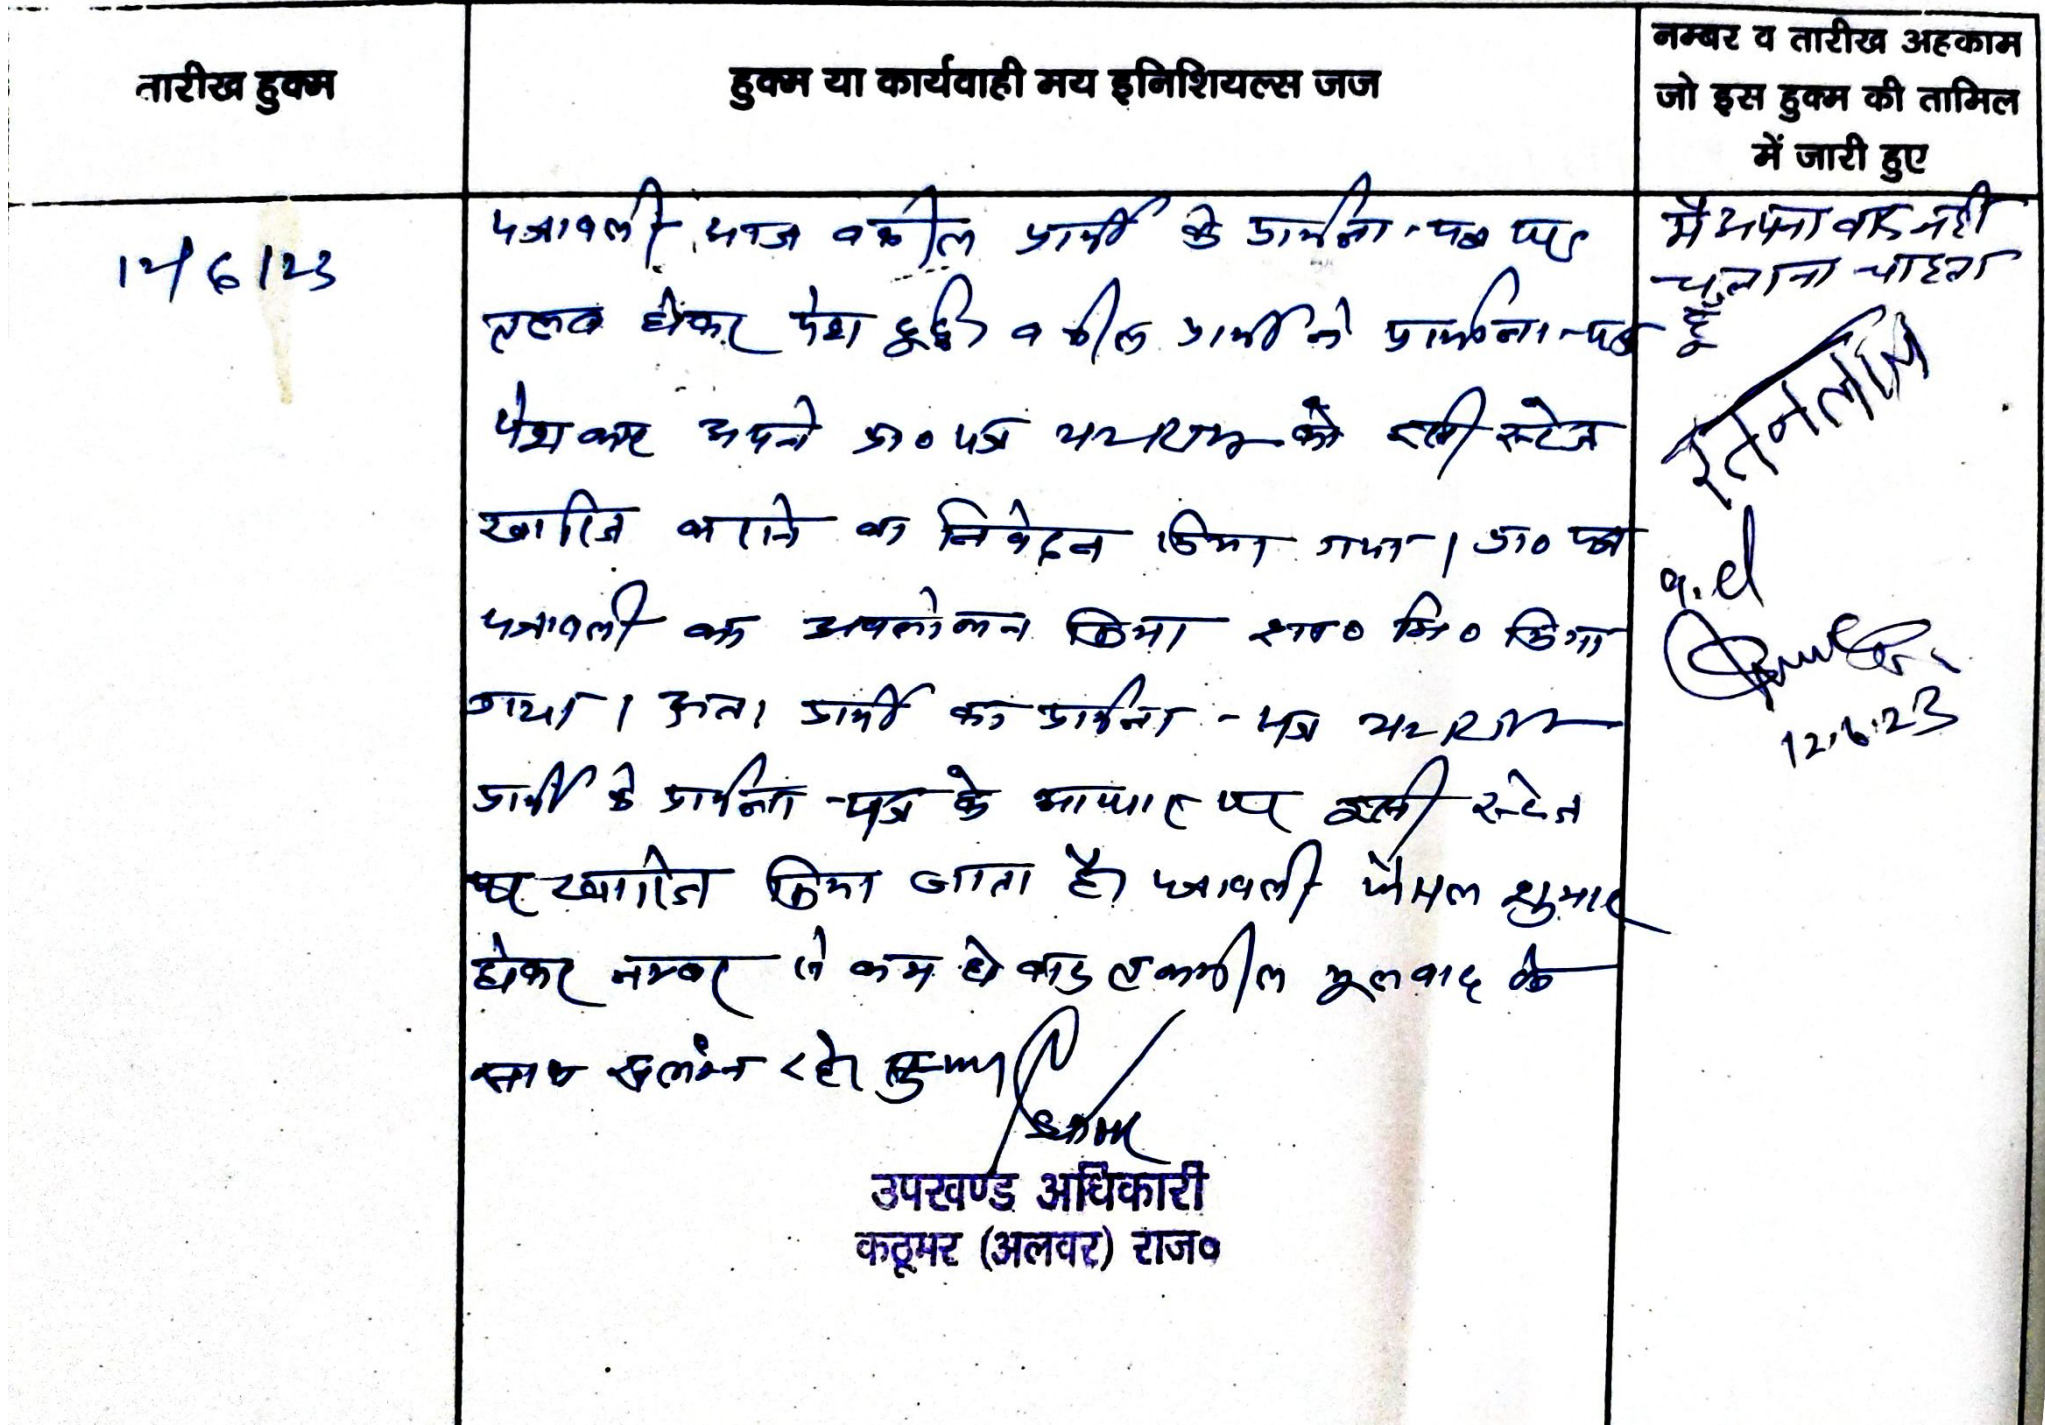 तारीख हुक्म
हुक्म या कार्यवाही मय इनिशियल्स जज
नम्बर व तारीख अहकाम
जो इस हुक्म की तामिल
में जारी हुए
12/6/23
पत्रावली आज वकील प्रार्थी के प्रार्थना-पत्र पर
तलब होकर पेश हुई। वकील प्रार्थी ने प्रार्थना-पत्र
पेश कर अपने प्रा० पत्र को इसी स्टेज
खारिज कराने का निवेदन किया गया। प्रा० पत्र
पत्रावली का अवलोकन किया किया
गया। अतः प्रार्थी का प्रार्थना-पत्र
प्रार्थी के प्रार्थना-पत्र के आधार पर इसी स्टेज
पर खारिज किया जाता है। पत्रावली फैसल शुमार
होकर नम्बर से कम हो बाद तकमील मूलवाद के
साथ संलग्न रहे।
उपखण्ड अधिकारी
कठूमर (अलवर) राज०
मैं अपना वाद नहीं
चलाना चाहता
हूँ
रतनलाल
12.6.23